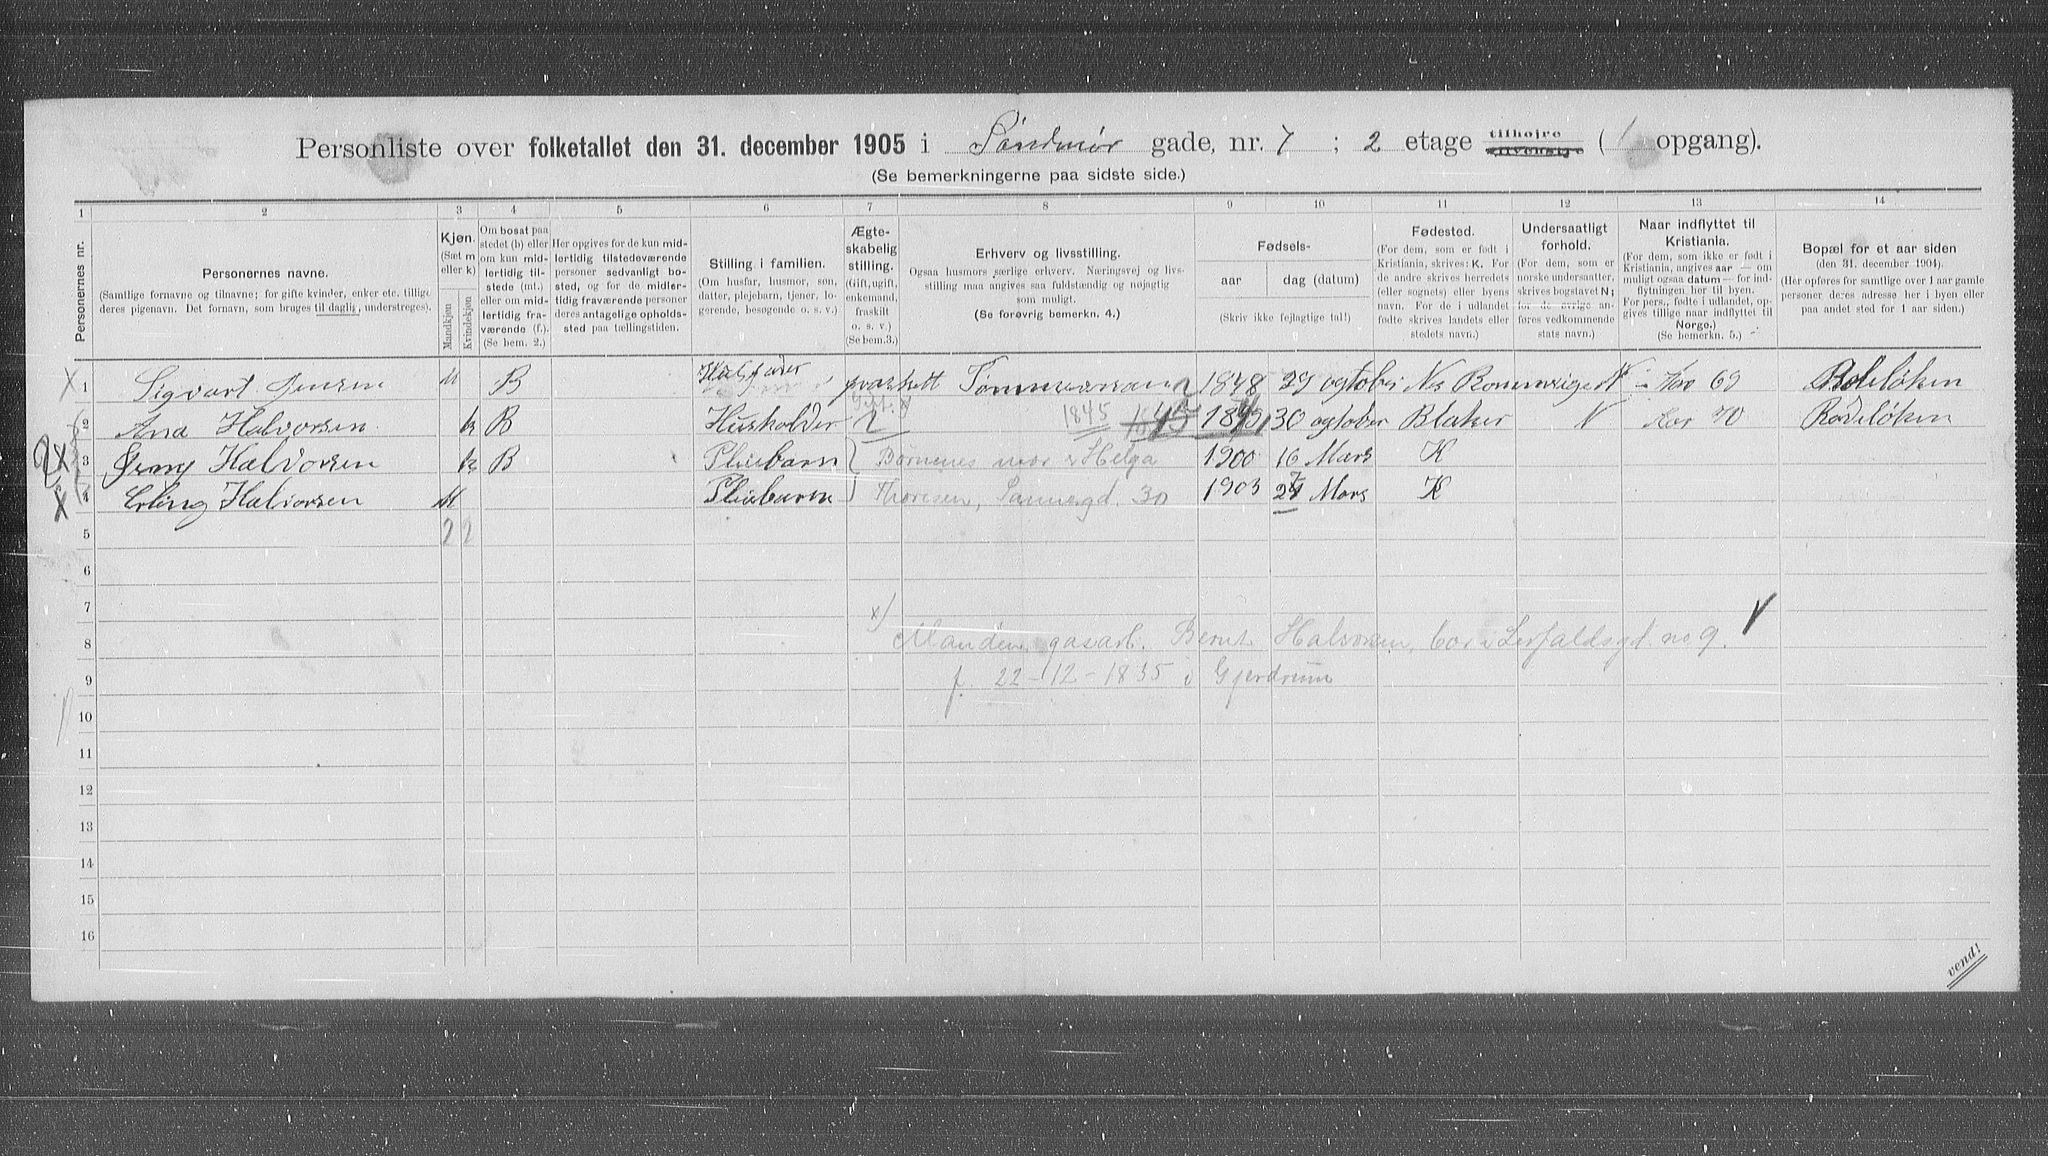 Personliste over folketallet den 31. december 1905 i Søndmør gade, nr. 7 ; 2 etage tilhøjre (1 opgang).
(Se bemerkningerne paa sidste side.)
1 2 3 4 5 6 7 8 9 10 11 12 13 14
Personernes nr.
Personernes navne.
(Samtlige fornavne og tilnavne; for gifte kvinder, enker etc. tillige deres pigenavn. Det fornavn, som bruges til daglig, understreges).
Kjøn.
(Sæt m eller k)
Mandkjøn
Kvindekjøn
Om bosat paa stedet (b) eller om kun midlertidig tilstede (mt.) eller om midlertidig fraværende (f.). (Se bem. 2.)
Her opgives for de kun midlertidig tilstedeværende personer sedvanligt bosted, og for de midlertidig fraværende personer deres antagelige opholdssted paa tællingstiden.
Stilling i familien.
(Om husfar, husmor, søn, datter, plejebarn, tjener, logerende, besøgende o. s. v.)
Ægteskabelig stilling.
(Gift, ugift, enkemand, fraskilt o. s. v.)
(Se bem.3.)
Erhverv og livsstilling.
Ogsaa husmors særlige erhverv. Næringsvej og livsstilling maa angives saa fuldstændig og nøjagtig som muligt.
(Se forøvrig bemerkn. 4.)
Fødsels-
aar dag (datum)
(Skriv ikke fejlagtige tal!)
Fødested.
(For dem, som er født i Kristiania, skrives: K. For de andre skrives herredets (eller sognets) eller byens navn. For de i udlandet fødte skrives landets eller stedets navn.)
Undersaatligt forhold.
(For dem, som er norske undersaatter, skrives bogstavet N; for de øvrige anføres vedkommende stats navn.)
Naar indflyttet til Kristiania.
(For dem, som ikke er født i Kristiania, angives aar — om muligt ogsaa datum — for indflytningen her til byen. For pers., fødte i udlandet, opgives tillige naar indflyttet til Norge.)
(Se bemerkn. 5.)
Bopæl for et aar siden
(den 31. december 1904).
(Her opføres for samtlige over 1 aar gamle personer deres adresse her i byen eller paa andet sted for 1 aar siden.)
X 1 Sigvart Jensen M B Husfader 1848 29 ogtober N Aar 69 Rodeløken
2 Ana Halvorsen k B Husholder Gift x 1845 45 30 ogtober Blaker N Aar 70 Rodeløken
2x 3 Halvorsen k B Pleiebarn Børnenes mor er Helga 1900 16 Mars K
x 4 Erling Halvorsen M Pleiebarn Thoresen, Sannergd. 30 1903 27 Mars K
5 2 2
6
7
x)
8 Manden, gasarb. Bernt Halvorsen, bor i Leirfaldsgd. no 9.
9 f. 22-12-1835 i Gjerdrum
10
11
12
13
14
15
16
vend!